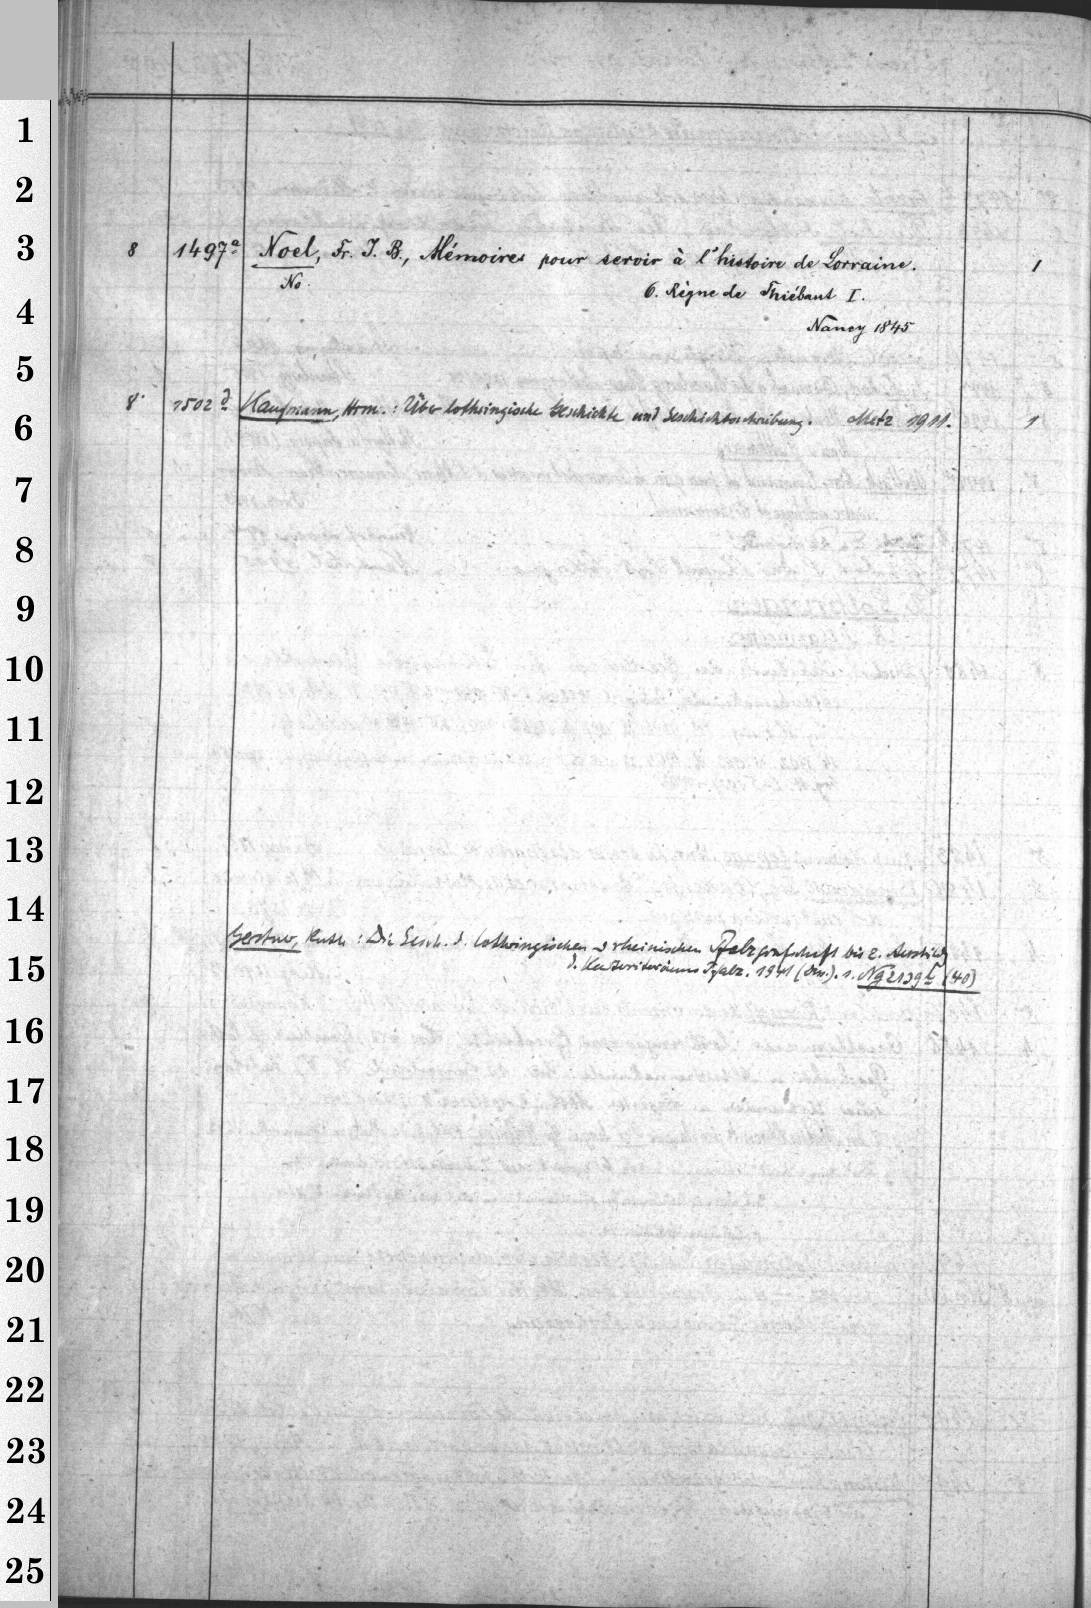 1
2
3
4
5
6
7
8
9
10
11
12
13
14
15
16
17
18
19
20
21
22
23
24
25
8 1497a Noel, Fr. J. B., Mémoires pour servir à l'histoire de Lorraine. 1
No.
6. Règne de Thiébaut I.
Nancy 1845
8° 1502d Kaufmann, Hrm.: Über lothringische Geschichte und Geschichtsschreibung. Metz 1911. 1
Gerstner, Ruth: Die Gesch. d. lothringischen u rheinischen Pfalzgrafschaft bis z.
d. Kurterritoriums Pfalz. 1941 (Diss.). s. Ng 2139f (40)